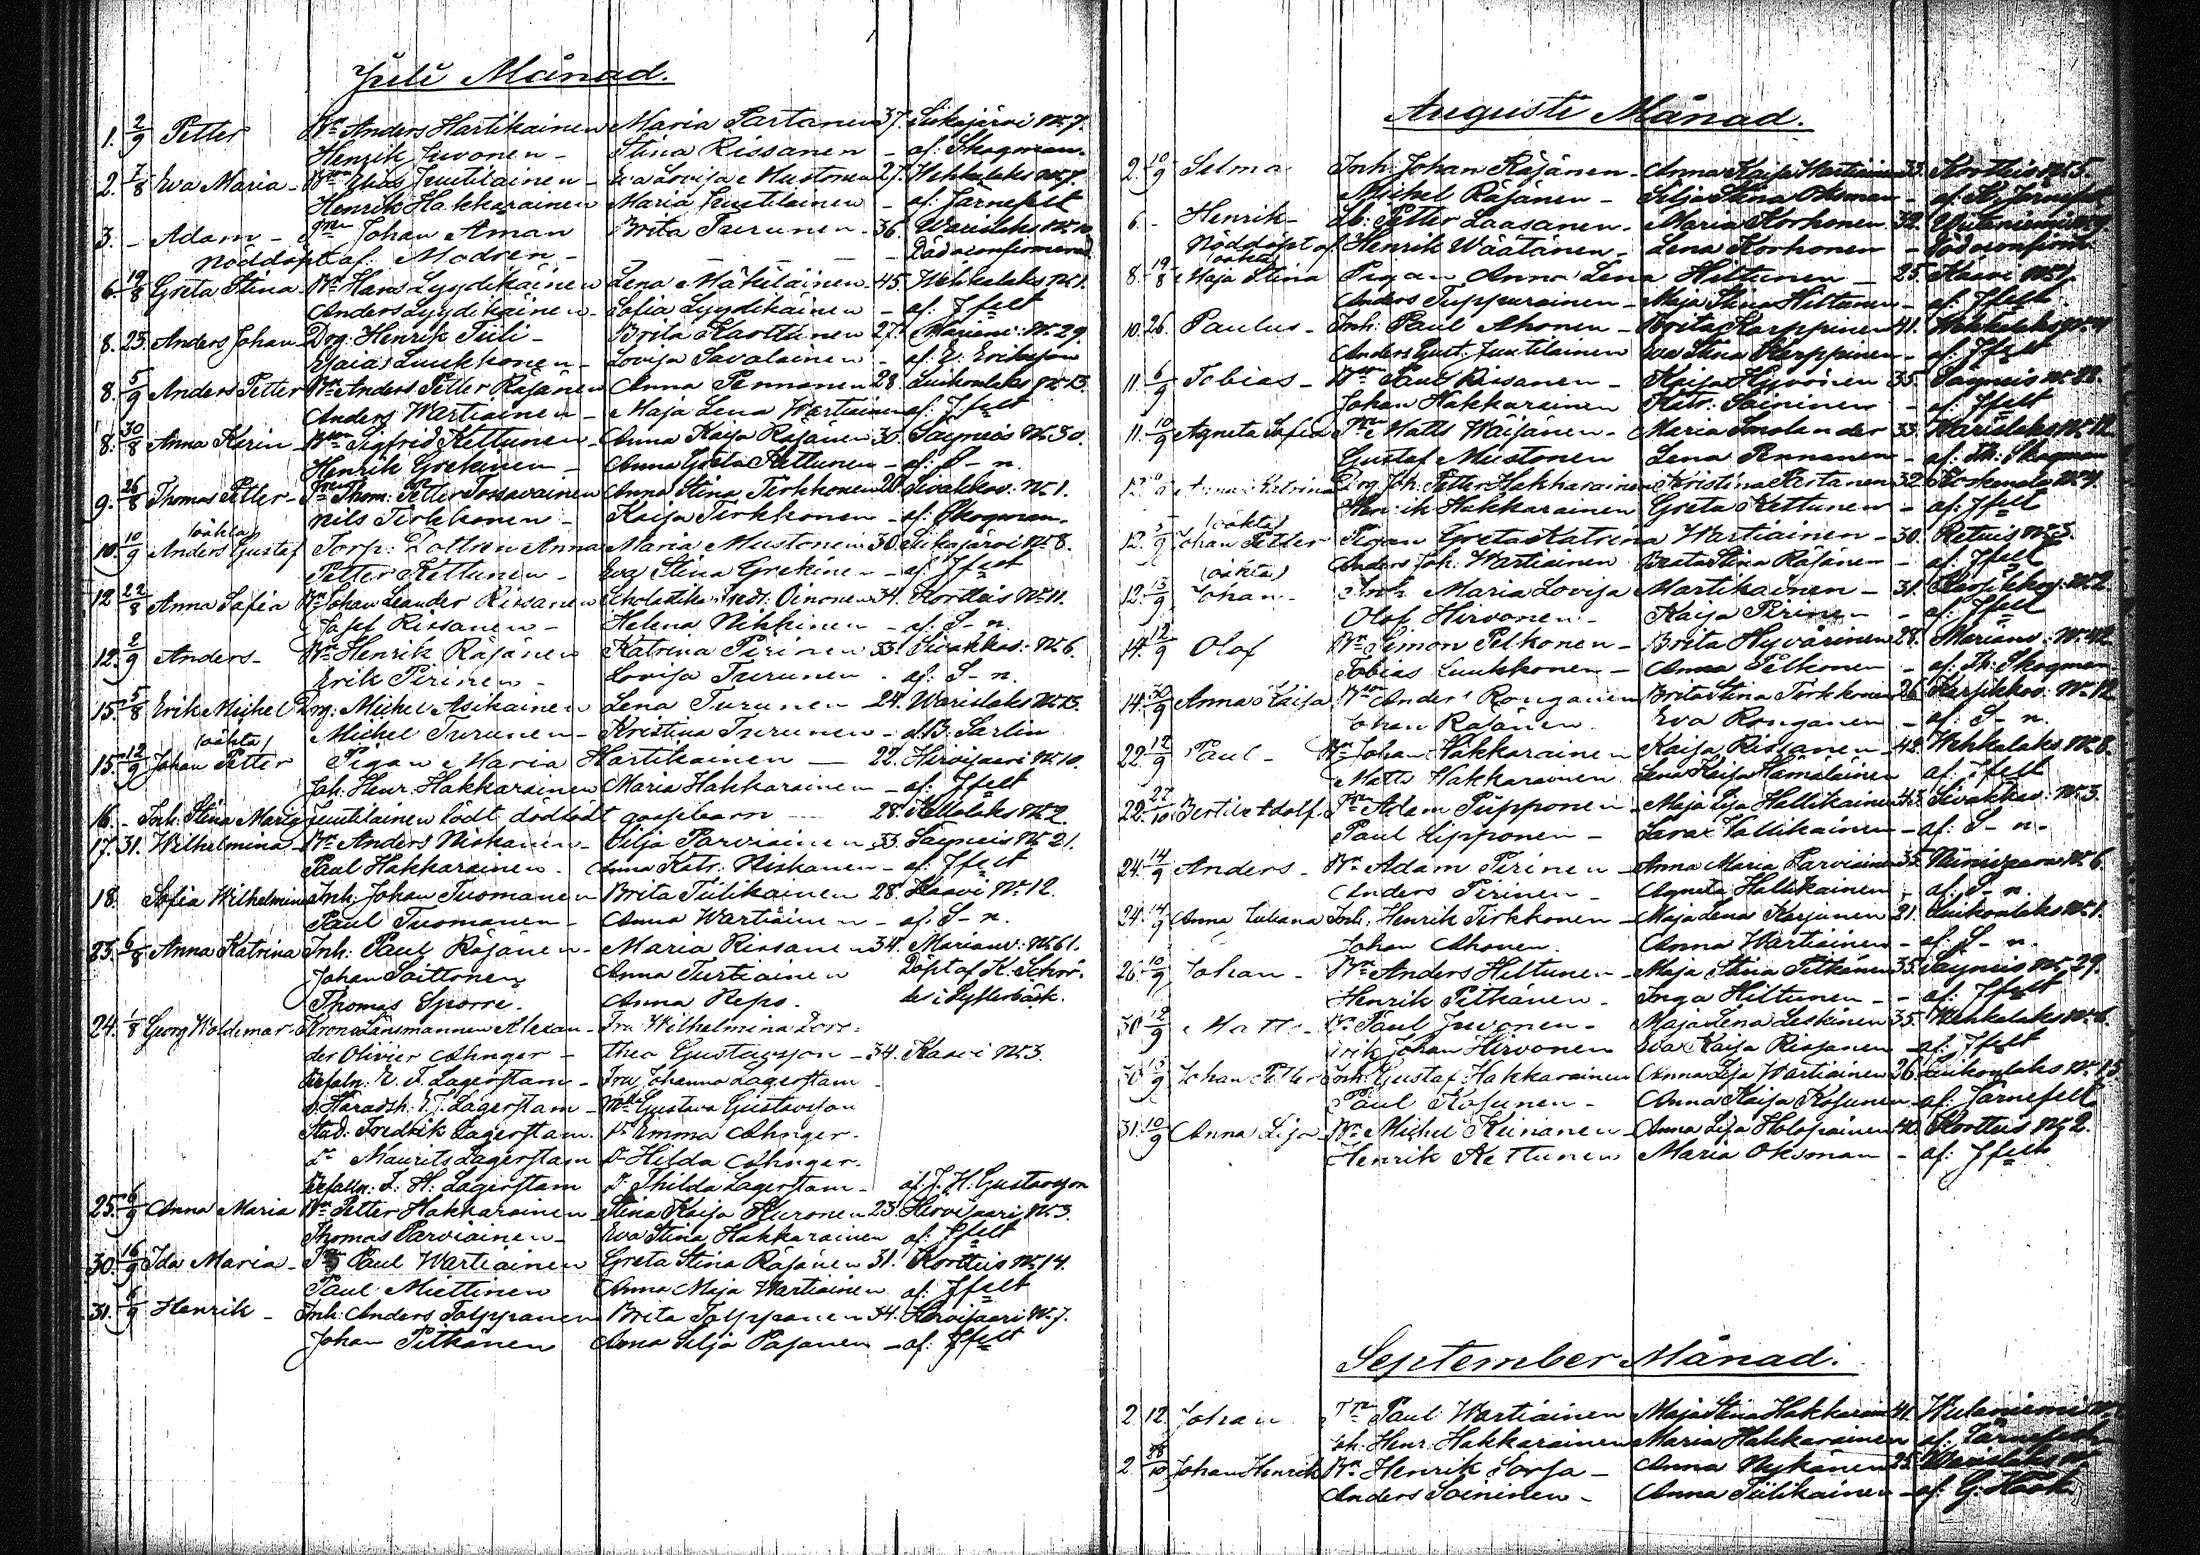 Juli Månad.
1. 2/9 Petter Bn Anders Hartikainen Maria Partanen 37. Sikajärvi No 7.
Henrik Juvonen - Stina Rissanen - af: Skogman.
2. 7/8 Eva Maria - Bson Elias Juutilainen - Eva Lovisa Mustonen 27. Wehkalaks No 7.
Henrik Hakkarainen Maria Juutilainen - af: Järnefelt
3. - Adam - Johan Aman Brita Turunen - 36. Warislaks No
Nöddöpt af: Modren - Död oconfirmerad
6. 19/8 Greta Stina Bn Hans Lyydikäinen Lena Mäkiläinen 45. Wehkalaks No 1.
Anders Lyydikäinen - Sofia Lyydikäinen - af: Jfelt
8. 23. Anders Johan Drg: Henrik Tiili - Brita Karttunen 27. Mariani: No 29.
Esaias Luukkonen - Lovisa Savalainen - af: E. Erikson
8. 5/9 Anders Petter Bn Anders Petter Räsänen Anna Pennanen 28. Luikonlaks No 13.
Anders Wartiainen - Maja Lena Wartiainen af: Jfelt
8. 30/8 Anna Karin Bson Sigfred Kettunen - Anna Kaisa Räsänen 30. Säyneis No 30.
Henrik Grekinen - Anna Greta Kettunen - af: S - n.
9. 26/8 Thomas Petter - Thom: Petter Tossavainen Anna Stina Tirkkonen 20. Sivakkav: No 1.
Nils Tirkkonen - Kaisa Tirkkonen - af: Skogman.
(oäkta)
10. 10/9 Anders Gustaf Torp: Dottren Anna Maria Mustonen 30. Sikajärvi No 8.
Petter Kettunen - Eva Stina Grekinen - af: Jfelt
12. 22/8 Anna Sofia Bn Johan Leander Rissanen Scholastika Oinonen 34. Kortteis No 11.
Josef Rissanen - Helena Nikkinen - af: S - n.
12. 2/9 Anders - Bn Henrik Räsänen Katrina Pirinen 33. Sivakkav: No 6.
Erik Pirinen - Lovisa Turunen - af: S - n.
15. 5/8 Erik Michel Drg: Michel Asikainen Lena Turunen 24. Warislaks No 13.
Michel Turunen - Kristina Turunen - af B. Sarlin
(oäkta)
15. 12/9 Johan Petter Pigan Maria Hartikainen - 22. Hirvisaari No 10.
Joh: Henr: Hakkarainen Maria Hakkarainen - af: Jfelt
16. - Inh: Stina Maria Juutilainen födt dödfödt gossebarn - 28. No 2.
17. 31. Wilhelmina - Bn Anders Niskanen - Silja Parviainen 33. Säyneis No 21.
Paul Hakkarainen - Anna Katr: Niskanen - af: Jfelt
18. Sofia Wilhelmina Inh: Johan Tuomanen Brita Tiilikainen 28. Kaavi No 12.
Paul Tuomanen - Anna Wartiainen - af: S - n.
23. 6/8 Anna Katrina Inh: Paul Räsänen - Maria Rissanen 34. Marianv: No 61.
Johan Soittonen Anna Turtiainen Döpt af K. Schrö-
Thomas Sporre. Anna Repo. der i Systerbäck.
24. 1/8 Georg Woldemar Krono Länsmannen Alexan- Fru Wilhelmina Doro-
der Olivier Ahnger - thea Gustavsson - 34. Kaavi No 3.
E. F. Lagerstam - Fru Johanna Lagerstam
v. Häradsh: Lagerstam - Mlle Gustava Gustavsson
Stud: Fredrik Lagerstam. Dr Emma Ahnger.
Dr Maurits Lagerstam Dr Hilda Ahnger.
L. H. Lagerstam Dr Thilda Lagerstam - af J. H. Gustavsson
25. 6/9 Anna Maria Bn Petter Hakkarainen Stina Kaisa Huronen 23. Hirvisaari No 3.
Thomas Parviainen - Eva Stina Hakkarainen af: Jfelt
30. 16/9 Ida Maria - Paul Wartiainen Greta Stina Räsänen 31. Kortteis No 14.
Paul Miettinen Anna Maja Wartiainen af: Jfelt
31. 6/9 Henrik - Inh: Anders Tolppanen Brita Tolppanen 34. Hirvisaari No 7.
Johan Pitkänen Anna Silja Pasanen - af: Jfelt
Augusti Månad.
2. 10/9 Selma Inh: Johan Räsänen - Anna Kaisa Wartiainen 33. Kortteis No 5.
Michel Räsänen - Silja Stina Oksman - af: Järnefelt
6. - Henrik - Petter Laasanen - Maria Korhonen 32.
Nöddöpt af Henrik Wäätänen - Lena Korhonen - Död oconfirm:
(oäkta)
8. 19/8 Maja Stina Pigan Anna Lena Hiltunen - 25. Kaavi No 1.
Anders Tuppurainen - Maja Stina Hiltunen - af: Jfelt
10. 26. Paulus - Inh: Paul Ahonen - Brita Karppinen 41. Wehkalaks No
Anders Gust: Juutilainen Eva Stina Karppinen - af: Jfelt
11. 6/9 Tobias - Bson Paul Rissanen - Kaisa Hyvönen 35. Säyneis No
Johan Hakkarainen Katr: Soininen - af: Jfelt
11. 10/9 Agneta Sofia Matts Wäisänen - Maria Smolander 33. Warislaks No
Gustaf Mustonen Lena Pennanen - af: Th: Skogman
12. Anna Katrina Drg: Joh: Petter Hakkarainen Kristina Kertanen 32. Koskenala No 4.
Henrik Hakkarainen Greta Kettunen - af: Jfelt
(oäkta)
12. 5/9 Johan Petter Pigan Greta Katrina Wartiainen - 30. Retuis No 3.
Anders Joh: Wartiainen Brita Stina Räsänen - af: Jfelt
(oäkta)
12. 13/9 Johan - Inh: Maria Lovisa Martikainen - 31. Karsikkov: No 2
Olof Hirvonen - Kaisa Pirinen - af: Jfelt
14. 12/9 Olof Bn Simon Pelkonen - Brita Hyvärinen 28. Marianv: No 42
Tobias Luukkonen - Anna Pelkonen - af: Th: Skogman.
14. 30/9 Anna Kaisa Bson Anders Ronganen Brita Stina Tirkkonen 26. Karsikkov: No 12
Johan Räsänen. Eva Ronganen - af: S - n.
22. 12/9 Paul - Bn Johan Hakkarainen Kaisa Rissanen - 42. Wehkalaks No 8.
Matts Hakkarainen Lena Kaisa Hämäläinen af: Jfelt
22. 27/10 Bertil Adolf. Adam Pipponen - Maja Lisa Hallikainen 43. Sivakkav: No 3.
Paul Pipponen - Sara Hallikainen - af: S - n.
24. 14/9 Anders - Bn Adam Pirinen - Anna Maria Parviainen 35. Niinivaara No 6.
Anders Pirinen - Agneta Hallikainen - af: S - n.
24. 14/9 Anna Juliana Inh: Henrik Tirkkonen - Maja Lena Karjunen 21. Luikonlaks No 1.
Johan Ahonen. Anna Wartiainen - af: S - n.
26. 10/9 Johan - Bn Anders Hiltunen - Maja Stina Pitkänen 35. Säyneis No 29.
Henrik Pitkänen - Inga Hiltunen - - af: Jfelt
30. 12/9 Matts - Bn Paul Juvonen - Maja Lena Leskinen 35. Wehkalaks No 6.
Erik Johan Hirvonen Eva Kaisa Rissanen - af: Jfelt
30. 13/9 Johan Petter Inh: Gustaf Hakkarainen Anna Lisa Wartiainen 26. Luikonlaks No 13
Paul Kosunen - Anna Kaisa Kosunen - af: Järnefelt
31. 10/9 Anna Lisa Bn Michel Keinanen - Anna Lisa Holopainen 40. Kortteis No 2.
Henrik Kettunen Maria Oksman - af: Jfelt
September Månad.
2 12. Johan Paul Wartiainen Maja Stina Hakkarain 41.
Joh: Henr: Hakkarainen Maria Hakkarainen af: Järnefelt
2 Johan Henrik Bn Henrik Sorsa - Anna Nykänen 25. Warislaks
Anders Soininen - Anna Tiilikainen - af: G. Höök